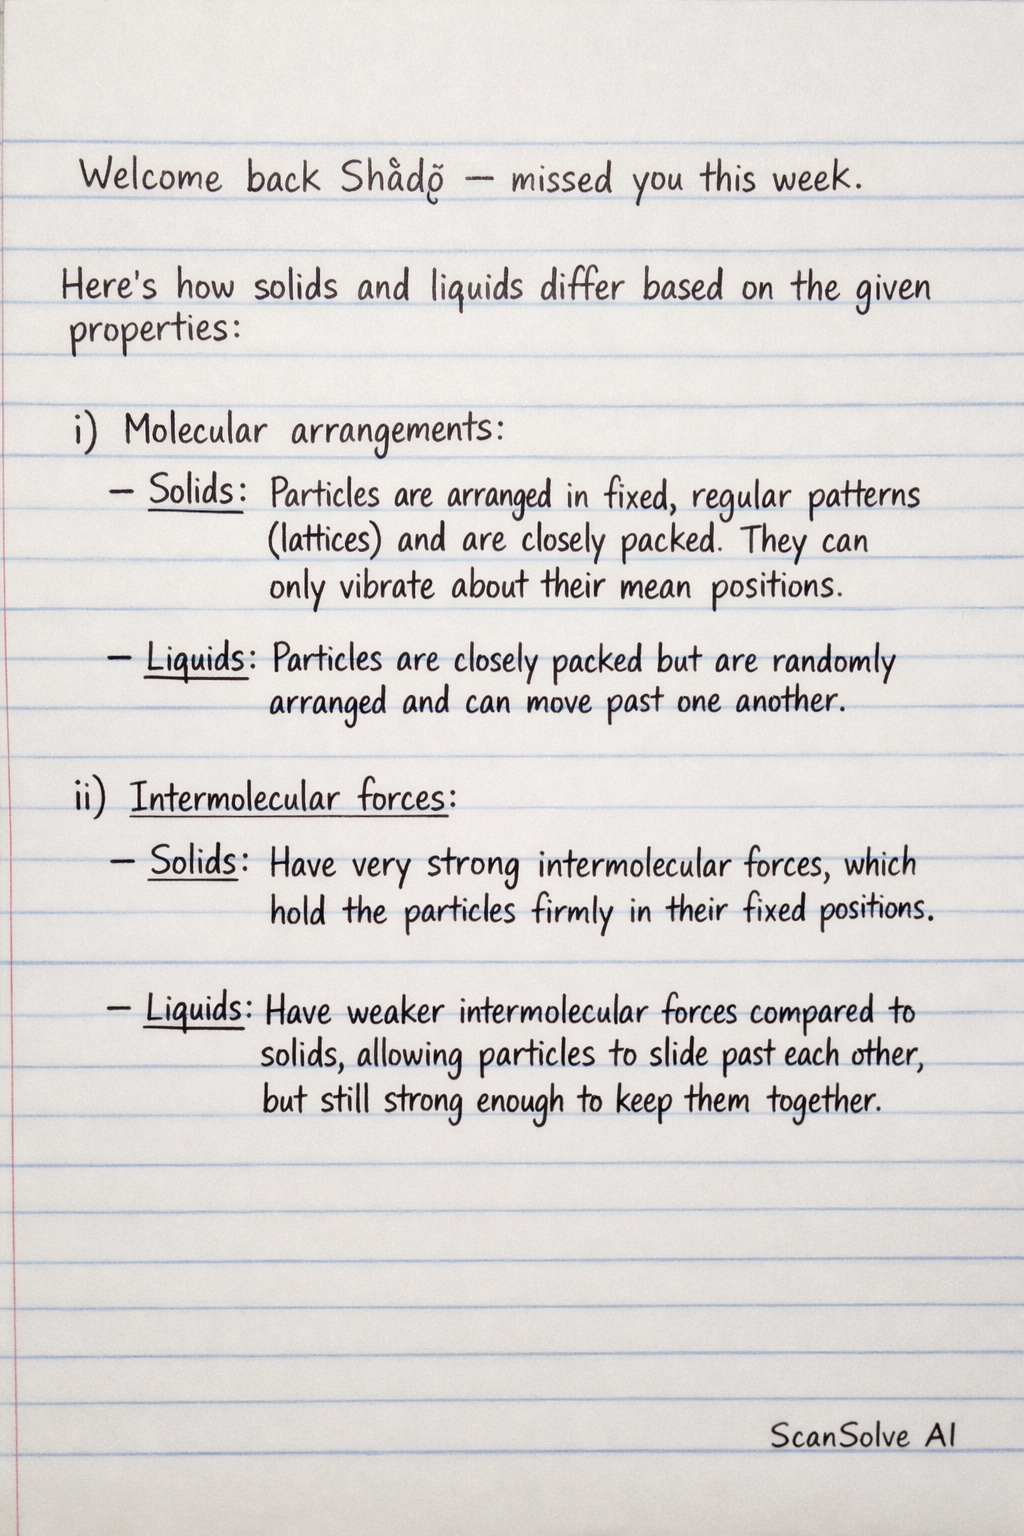 Welcome back Shådǫ̃ — missed you this week.
Here's how solids and liquids differ based on the given
properties:
i) Molecular arrangements:
— Solids: Particles are arranged in fixed, regular patterns
(lattices) and are closely packed. They can
only vibrate about their mean positions.
— Liquids: Particles are closely packed but are randomly
arranged and can move past one another.
ii) Intermolecular forces:
— Solids: Have very strong intermolecular forces, which
hold the particles firmly in their fixed positions.
— Liquids: Have weaker intermolecular forces compared to
solids, allowing particles to slide past each other,
but still strong enough to keep them together.
ScanSolve AI